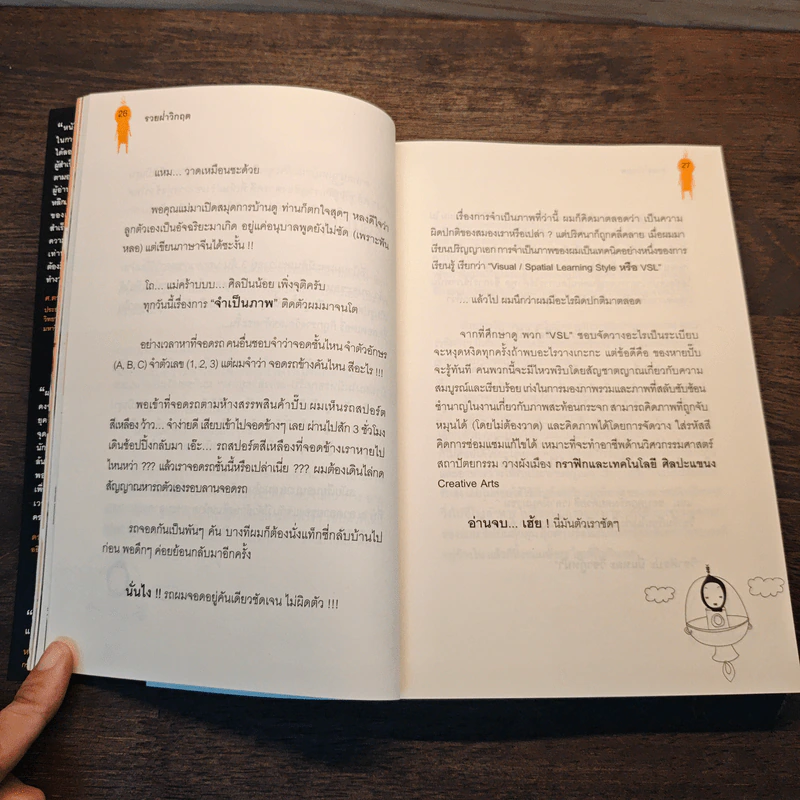 26
รวยฝ่าวิกฤต
แหม... วาดเหมือนซะด้วย
พอคุณแม่มาเปิดสมุดการบ้านดู ท่านก็ตกใจสุดๆ หลงดีใจว่า
ลูกตัวเองเป็นอัจฉริยะมาเกิด อยู่แค่อนุบาลพูดยังไม่ชัด (เพราะฟัน
หลอ) แต่เขียนภาษาจีนได้ซะงั้น !!
โถ... แม่คร้าบบบ... ศิลปินน้อย เพิ่งจุติครับ
ทุกวันนี้เรื่องการ “จำเป็นภาพ” ติดตัวผมมาจนโต
อย่างเวลาหาที่จอดรถ คนอื่นชอบจำว่าจอดชั้นไหน จำตัวอักษร
(A, B, C) จำตัวเลข (1, 2, 3) แต่ผมจำว่า จอดรถข้างคันไหน สีอะไร !!!
พอเข้าที่จอดรถตามห้างสรรพสินค้าปั๊บ ผมเห็นรถสปอร์ต
สีเหลือง ว้าว... จำง่ายดี เสียบเข้าไปจอดข้างๆ เลย ผ่านไปสัก 3 ชั่วโมง
เดินช้อปปิ้งกลับมา เอ๊ะ... รถสปอร์ตสีเหลืองที่จอดข้างเราหายไป
ไหนหว่า ??? แล้วเราจอดรถชั้นนี้หรือเปล่าเนี่ย ??? ผมต้องเดินไล่กด
สัญญาณหารถตัวเองรอบลานจอดรถ
รถจอดกันเป็นพันๆ คัน บางทีผมก็ต้องนั่งแท็กซี่กลับบ้านไป
ก่อน พอดึกๆ ค่อยย้อนกลับมาอีกครั้ง
นั่นไง !! รถผมจอดอยู่คันเดียวชัดเจน ไม่ผิดตัว !!!
27
เรื่องการจำเป็นภาพที่ว่านี้ ผมก็คิดมาตลอดว่า เป็นความ
ผิดปกติของสมองเราหรือเปล่า ? แต่ปริศนาก็ถูกคลี่คลาย เมื่อผมมา
เรียนปริญญาเอก การจำเป็นภาพของผมเป็นเทคนิคอย่างหนึ่งของการ
เรียนรู้ เรียกว่า “Visual / Spatial Learning Style หรือ VSL”
... แล้วไป ผมนึกว่าผมมีอะไรผิดปกติมาตลอด
จากที่ศึกษาดู พวก “VSL” ชอบจัดวางอะไรเป็นระเบียบ
จะหงุดหงิดทุกครั้งถ้าพบอะไรวางเกะกะ แต่ข้อดีคือ ของหายปั๊บ
จะรู้ทันที คนพวกนี้จะมีไหวพริบโดยสัญชาตญาณเกี่ยวกับความ
สมบูรณ์และเรียบร้อย เก่งในการมองภาพรวมและภาพที่สลับซับซ้อน
ชำนาญในงานเกี่ยวกับภาพสะท้อนกระจก สามารถคิดภาพที่ถูกจับ
หมุนได้ (โดยไม่ต้องวาด) และคิดภาพได้โดยการจัดวาง ใส่รหัสสี
คิดการซ่อมแซมแก้ไขได้ เหมาะที่จะทำอาชีพด้านวิศวกรรมศาสตร์
สถาปัตยกรรม วางผังเมือง กราฟิกและเทคโนโลยี ศิลปะแขนง
Creative Arts
อ่านจบ... เฮ้ย ! นี่มันตัวเราชัดๆ